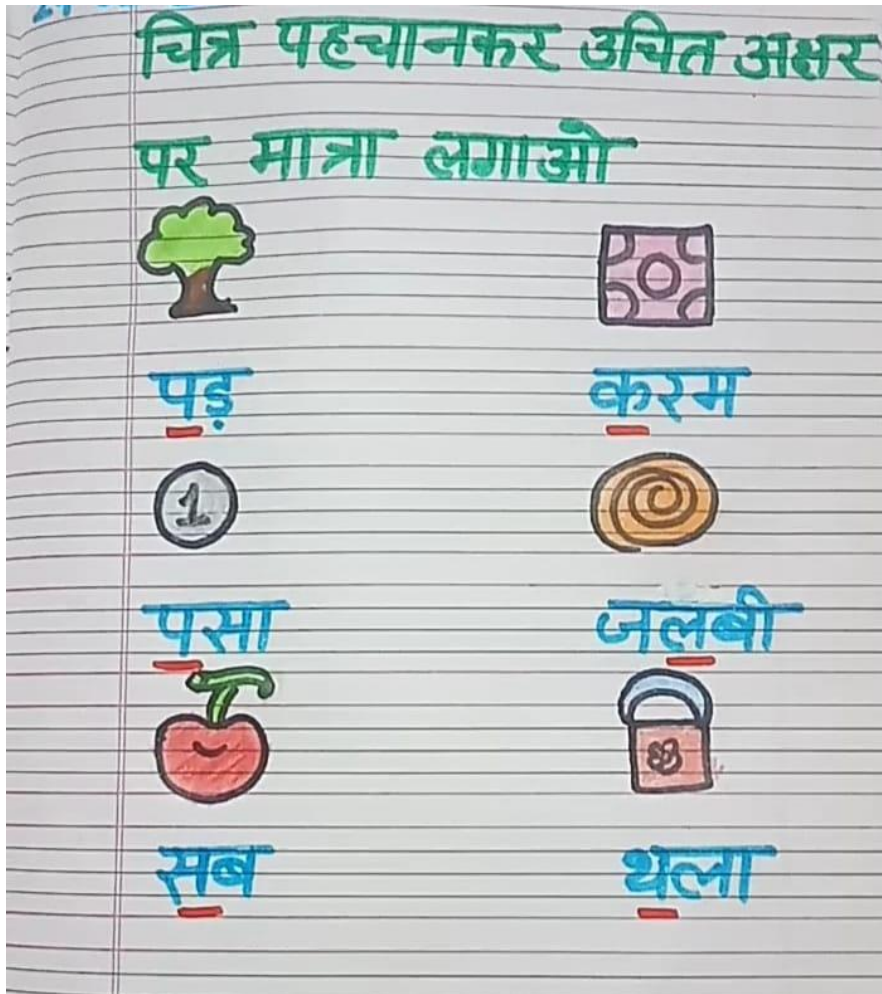 चित्र पहचानकर उचित अक्षर
पर मात्रा लगाओ
पड़ करम
1
पसा जलबी
सब थला